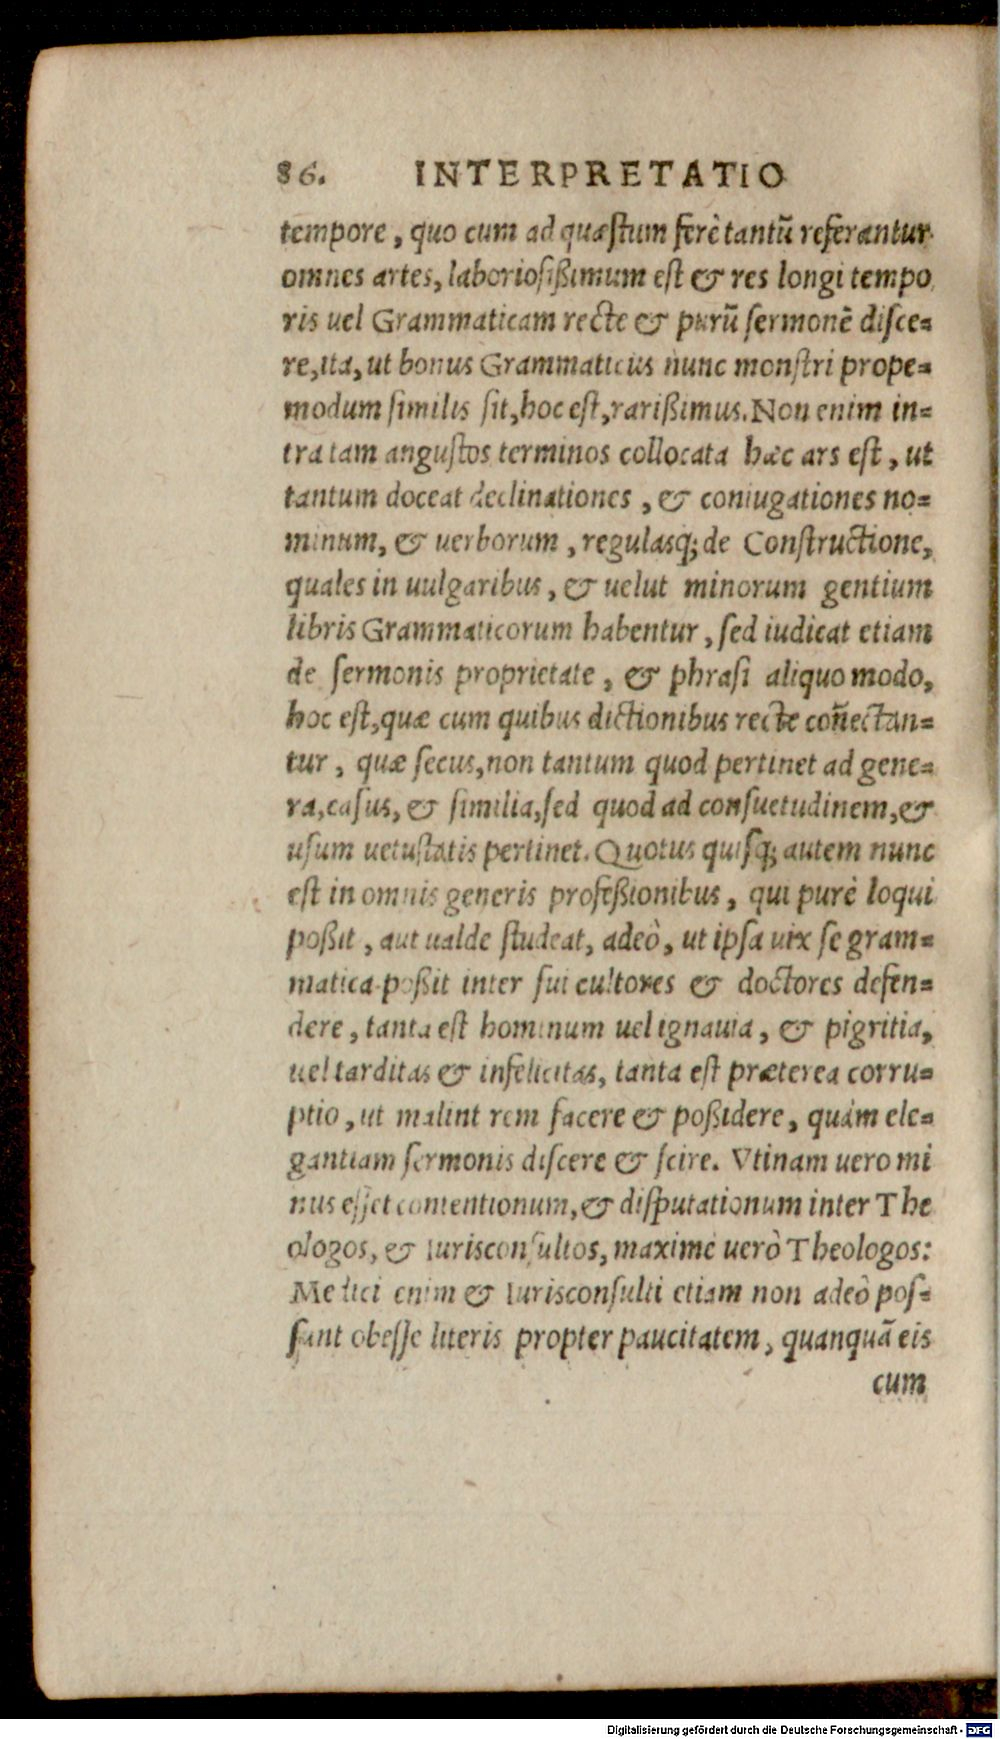 86. INTERPRETATIO
tempore, quo cum ad quæstum ferè tantũ referantur
omnes artes, laboriosißimum est & res longi tempo
ris uel Grammaticam recte & purũ sermonẽ disce=
re, ita, ut bonus Grammaticus nunc monstri prope=
modum similis sit, hoc est, rarißimus. Non enim in=
tra tam angustos terminos collocata hæc ars est, ut
tantum doceat declinationes, & coniugationes no=
minum, & uerborum, regulasq; de Constructione,
quales in uulgaribus, & uelut minorum gentium
libris Grammaticorum habentur, sed iudicat etiam
de sermonis proprietate, & phrasi aliquo modo,
hoc est, quæ cum quibus dictionibus recte coñectan=
tur, quæ secus, non tantum quod pertinet ad gene=
ra, casus, & similia, sed quod ad consuetudinem, &
usum uetustatis pertinet. Quotus quisq; autem nunc
est in omnis generis profeßionibus, qui purè loqui
poßit, aut ualde studeat, adeò, ut ipsa uix se gram=
matica poßit inter sui cultores & doctores defen=
dere, tanta est hominum uel ignauia, & pigritia,
uel tarditas & infelicitas, tanta est præterea corru=
ptio, ut malint rem facere & poßidere, quàm ele=
gantiam sermonis discere & scire. Vtinam uero mi
nus esset contentionum, & disputationum inter The
ologos, & Iurisconsultos, maximè uerò Theologos:
Medici enim & Iurisconsulti etiam non adeò pos=
sunt obesse literis propter paucitatem, quanquã eis
cum
Digitalisierung gefördert durch die Deutsche Forschungsgemeinschaft - DFG